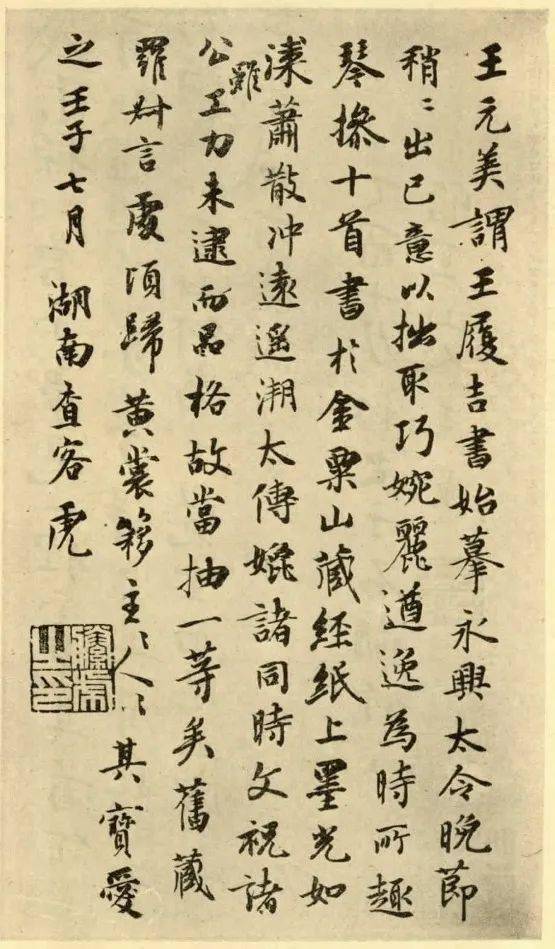 王元美謂王履吉書始摹永興太令晚節
稍〻出已意以拙取巧婉麗遒逸為時所趣
琴操十首書於金粟山藏經紙上墨光如
漆蕭散冲遠遥溯太傅媲諸同時文祝諸
公雖工力未逮而品格故當抽一等矣舊藏
羅叔言處頃歸黃裳簃主〻人〻其寶愛
之壬子七月 湖南查客虎